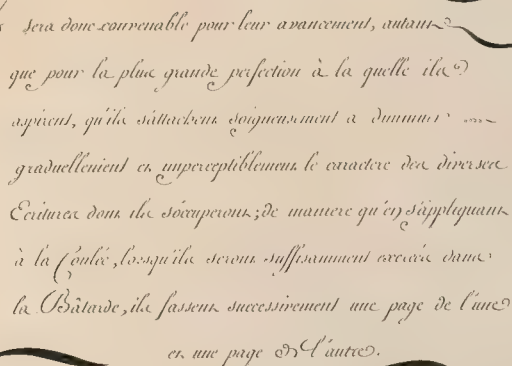 sera donc convenable pour leur avancement, autant
que pour la plus grande perfection à la quelle ils
aspirent, qu'ils s'attachent soigneusement a diminuer
graduellement et imperceptiblement le caractere des diverses
Ecritures dont ils s'occuperont; de maniere qu'en s'appliquant
à la Coulée, lorsqu'ils seront suffisamment exercés dans
la Bâtarde, ils fassent successivement une page de l'une
et une page de l'autre.